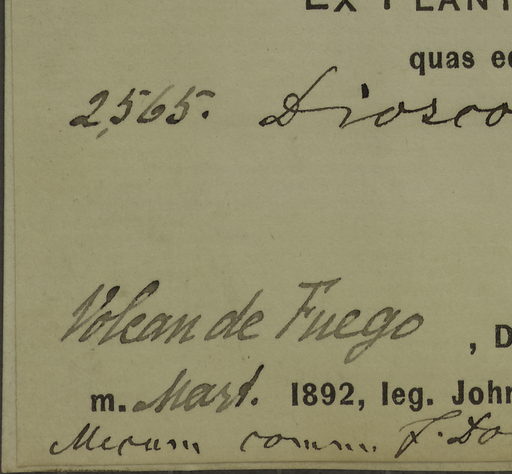 EX PLANT
quas ed
2,565. Diosco
Volcan de Fuego , D
m. Mart. 1892, leg. John
Mecum comm. J. Do